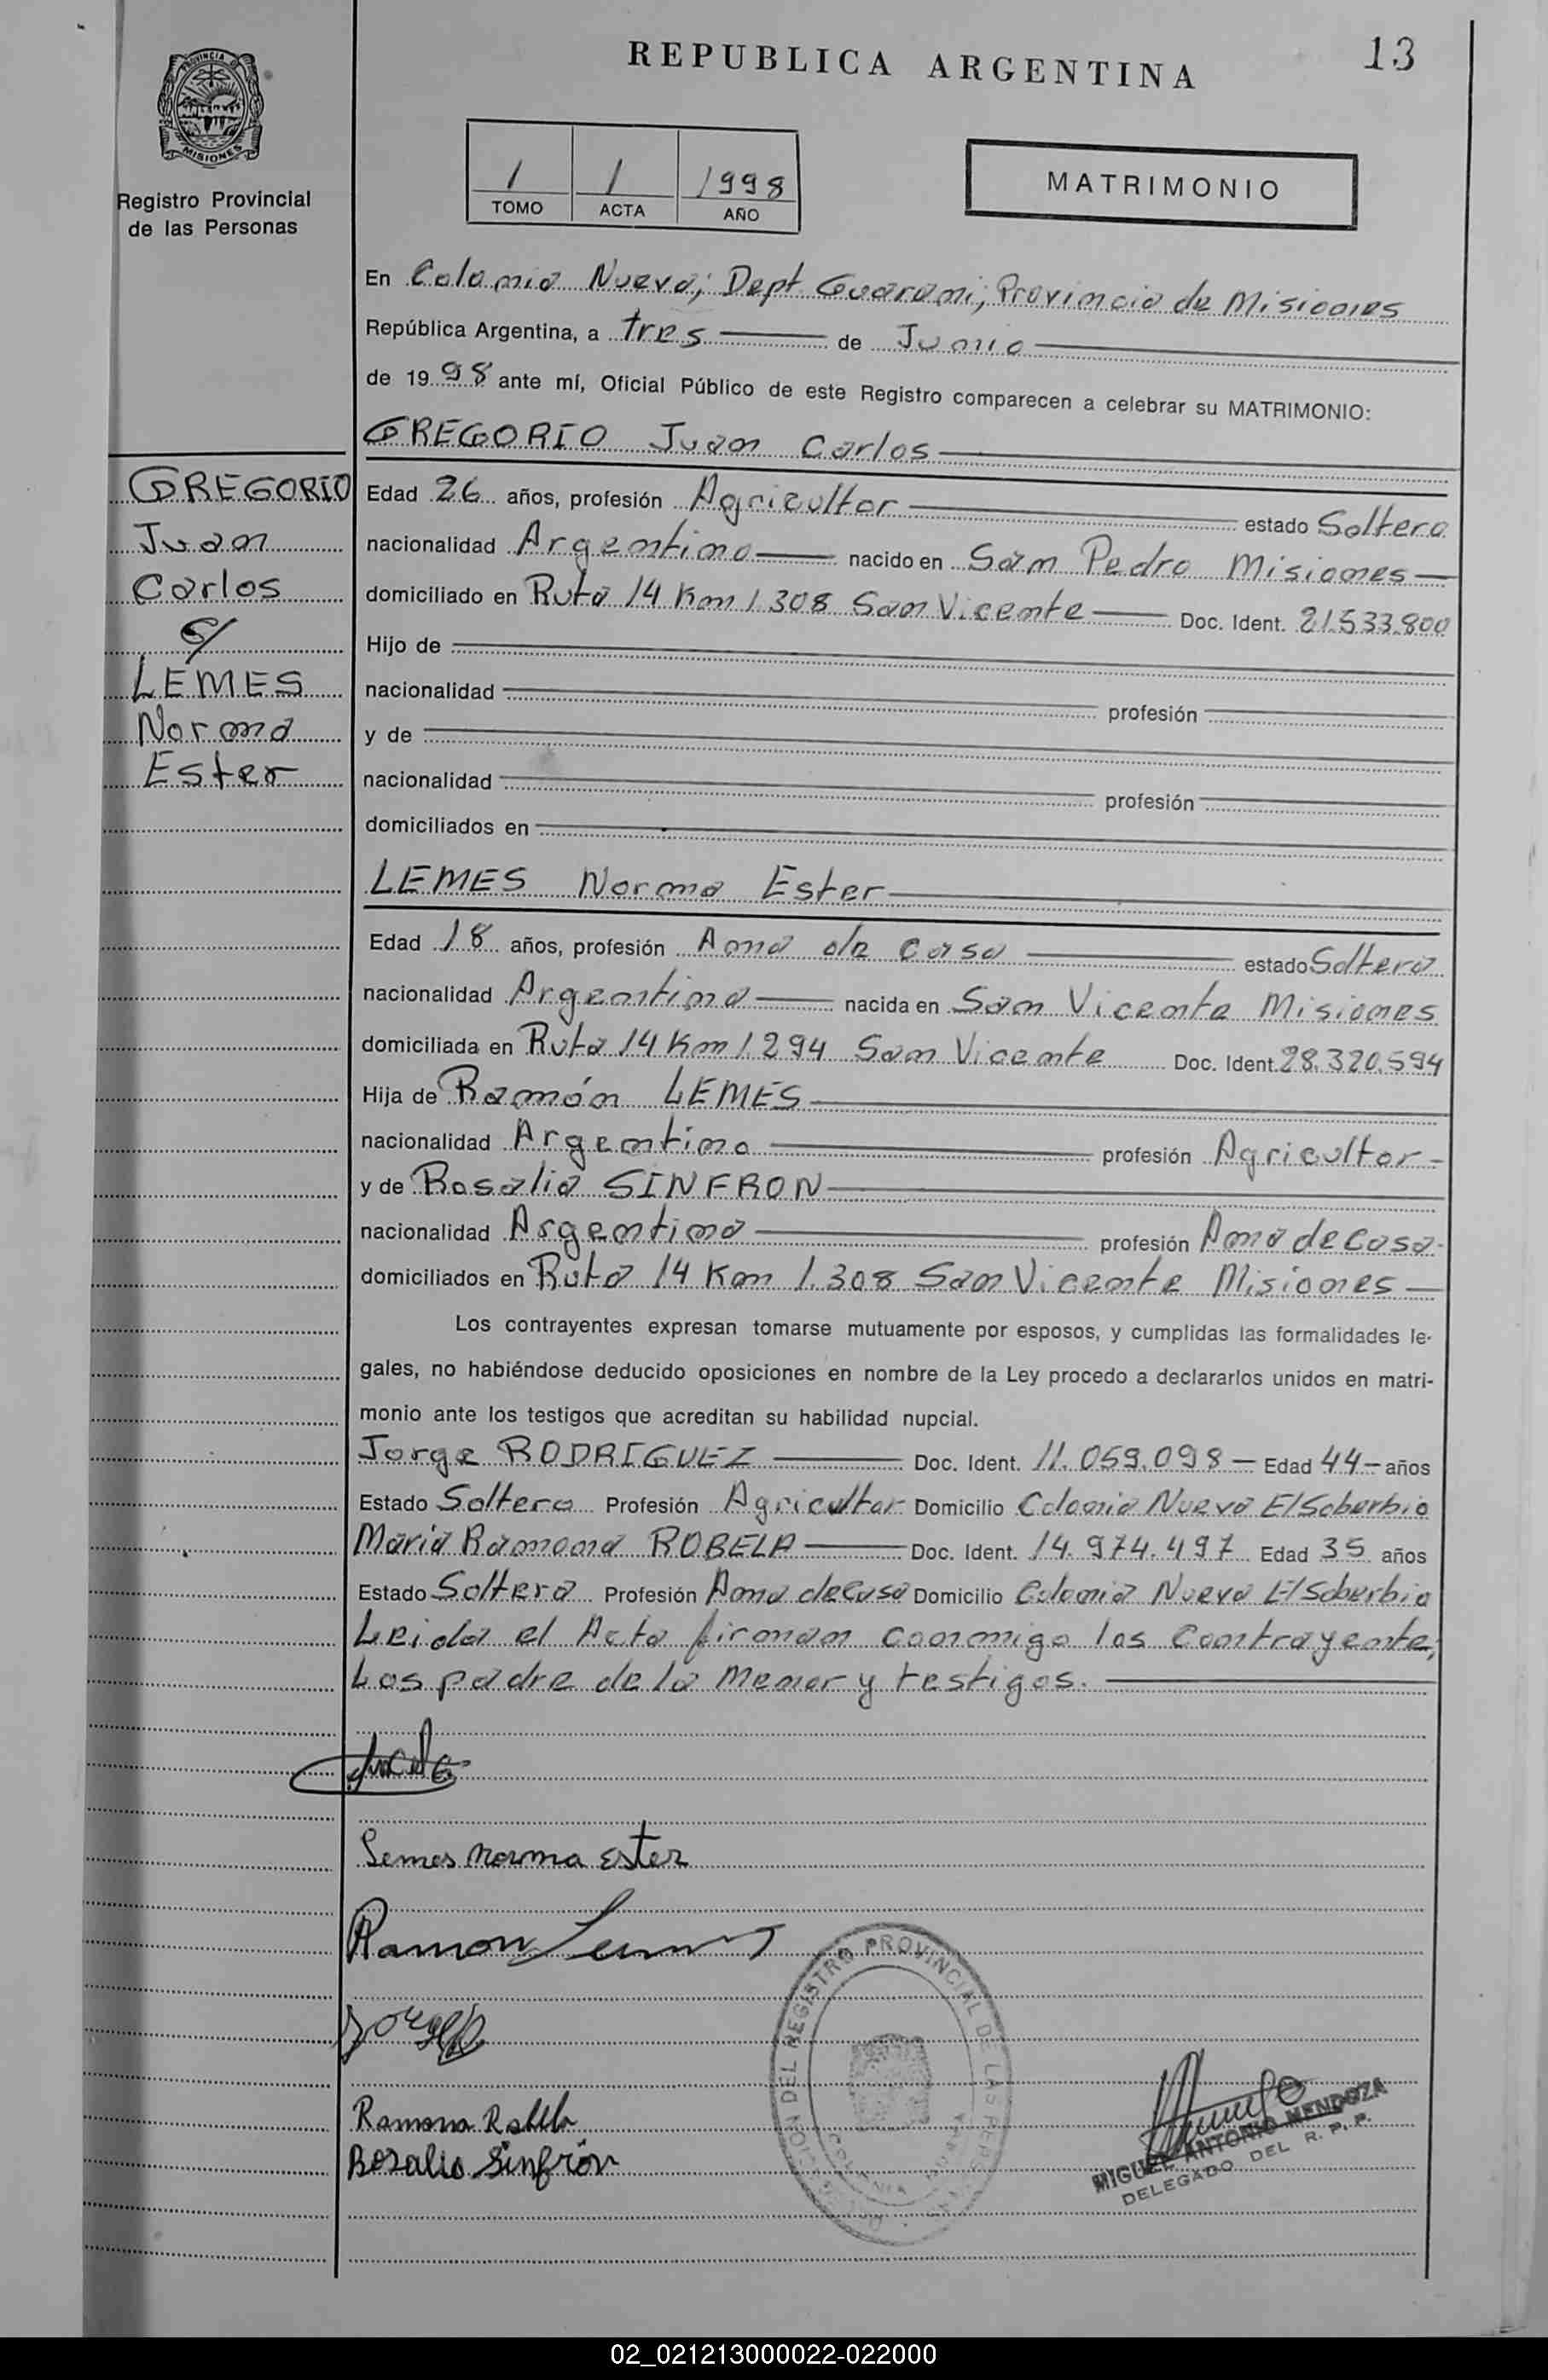 REPUBLICA ARGENTINA
13
PROVINCIA DE
MISIONES
Registro Provincial
de las Personas
1 1 1998
TOMO ACTA AÑO
MATRIMONIO
En Colonia Nueva; Dept. Guarani; Provincia de Misiones
República Argentina, a tres de Junio
de 19 98 ante mí, Oficial Público de este Registro comparecen a celebrar su MATRIMONIO:
GREGORIO Juan Carlos
GREGORIO
Juan
Carlos
c/
LEMES
Norma
Ester
Edad 26 años, profesión Agricultor estado Soltero
nacionalidad Argentino nacido en San Pedro Misiones
domiciliado en Ruta 14 Km 1.308 San Vicente Doc. Ident. 21.533.800
Hijo de
nacionalidad profesión
y de
nacionalidad profesión
domiciliados en
LEMES Norma Ester
Edad 18 años, profesión Ama de Casa estado Soltera
nacionalidad Argentina nacida en San Vicente Misiones
domiciliada en Ruta 14 Km 1.294 San Vicente Doc. Ident. 28.320.594
Hija de Ramón LEMES
nacionalidad Argentino profesión Agricultor
y de Rosalia SINFRON
nacionalidad Argentina profesión Ama de Casa
domiciliados en Ruta 14 Km 1.308 San Vicente Misiones
Los contrayentes expresan tomarse mutuamente por esposos, y cumplidas las formalidades le-
gales, no habiéndose deducido oposiciones en nombre de la Ley procedo a declararlos unidos en matri-
monio ante los testigos que acreditan su habilidad nupcial.
Jorge RODRIGUEZ Doc. Ident. 11.059.098 Edad 44 años
Estado Soltero Profesión Agricultor Domicilio Colonia Nueva El Soberbio
Maria Ramona ROBELA Doc. Ident. 14.974.497 Edad 35 años
Estado Soltera Profesión Ama de Casa Domicilio Colonia Nueva El Soberbio
Leida el Acta firman conmigo los Contrayente,
Los padre de la Menor y testigos.
Lemes norma ester
Ramon Lemes
Ramona Robela
Rosalia Sinfrón
DEL REGISTRO PROVINCIAL DE LAS PERSONAS
MIGUEL ANTONIO MENDOZA
DELEGADO DEL R. P. P.
02_021213000022-022000